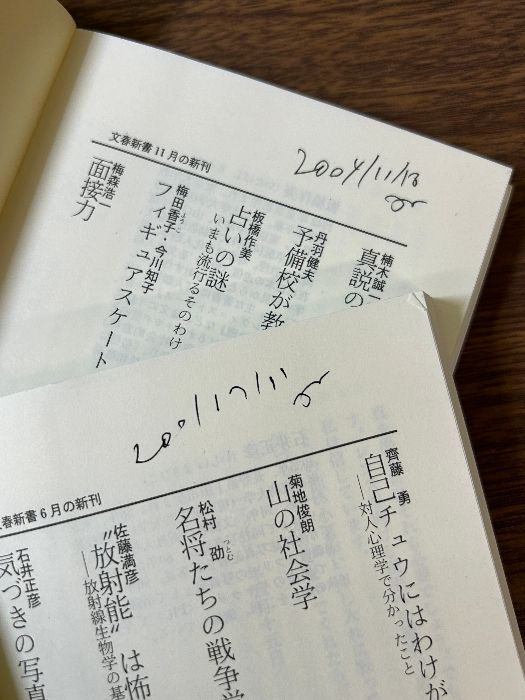 2004/11/18
文春新書11月の新刊
楠木誠一
真説の
丹羽健夫
予備校が教
板橋作美
占いの謎
いまも流行るそのわけ
梅田香子・今川知子
ようこ
フィギュアスケート
梅森浩一
面接力
2001/7/11
春新書6月の新刊
齊藤 勇
自己チュウにはわけが
――対人心理学で分かったこと
菊地俊朗
山の社会学
松村 劭
つとむ
名将たちの戦争学
佐藤満彦
"放射能"は怖
――放射線生物学の基
石井正彦
気づきの写真